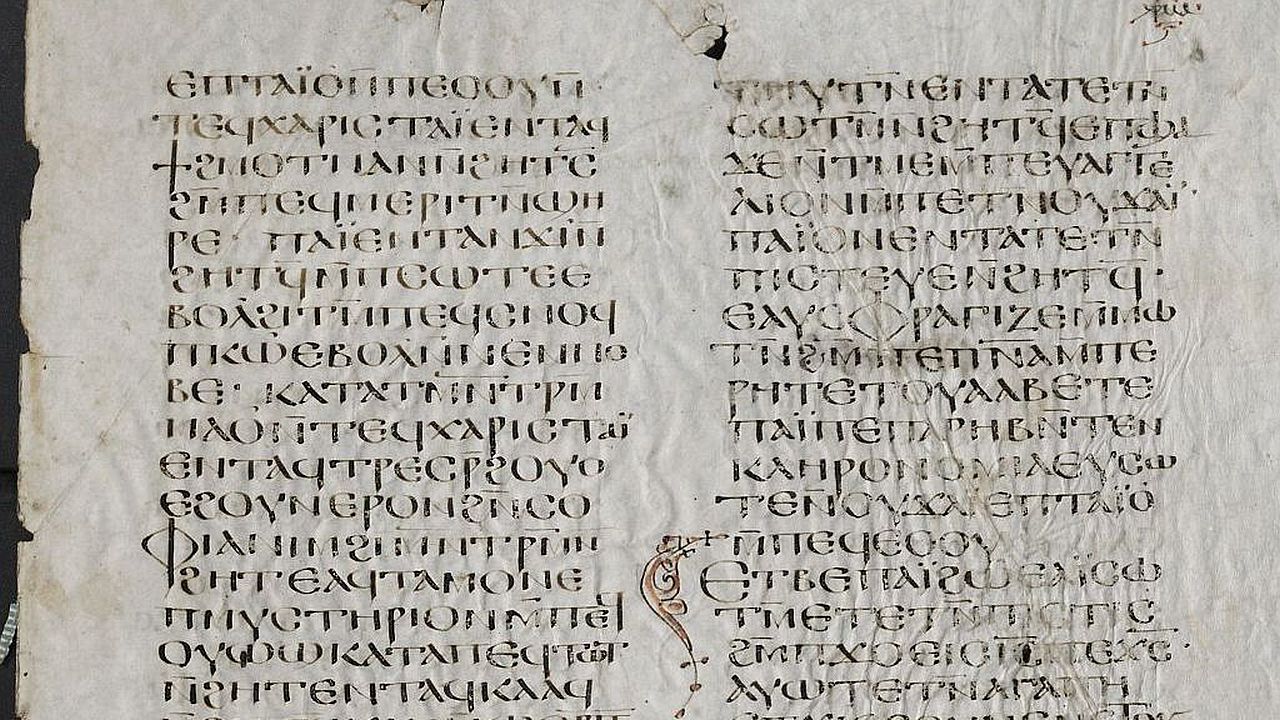 ⲉⲡⲧⲁⲓ̈ⲟⲙ̄ⲡⲉⲟⲟⲩⲛ̄
ⲧⲉϥⲭⲁⲣⲓⲥⲧⲁⲓ̈ⲉⲛⲧⲁϥ
ϯϩⲙⲟⲧⲛⲁⲛⲛ̄ϩⲏⲧⲥ̄
ϩⲙ̄ⲡⲉϥⲙⲉⲣⲓⲧⲛ̄ϣⲏ
ⲣⲉ· ⲡⲁⲓ̈ⲉⲛⲧⲁⲛϫⲓⲛ̄
ϩⲏⲧϥ̄ⲙ̄ⲡⲥⲱⲧⲉⲉ
ⲃⲟⲗϩⲓⲧⲙ̄ⲡⲉϥⲥⲛⲟϥ
ⲡⲕⲱⲉⲃⲟⲗⲛ̄ⲛⲉⲛⲛⲟ
ⲃⲉ· ⲕⲁⲧⲁⲧⲙⲛ̄ⲧⲣⲙ̄
ⲙⲁⲟⲛ̄ⲧⲉϥⲭⲁⲣⲓⲥⲧⲁⲓ̈
ⲉⲛⲧⲁϥⲧⲣⲉⲥⲣ̄ϩⲟⲩⲟ
ⲉϩⲟⲩⲛⲉⲣⲟⲛϩⲛ̄ⲥⲟ
ⲫⲓⲁⲛⲓⲙϩⲓⲙⲛⲧⲣⲙ̄ⲛ
ϩⲏⲧⲉⲁϥⲧⲁⲙⲟⲛⲉ
ⲡⲙⲩⲥⲧⲏⲣⲓⲟⲛⲙ̄ⲡⲉϥ
ⲟⲩⲱϣⲕⲁⲧⲁⲡⲉϥⲧⲱϣ
ⲛ̄ϩⲏⲧⲉⲛⲧⲁϥⲕⲁⲁϥ
ⲧⲏⲩⲧⲛ̄ⲉⲛⲧⲁⲧⲉⲧⲛ̄
ⲥⲱⲧⲙ̄ⲛ̄ϩⲏⲧϥ̄ⲉⲡϣⲁ
ϫⲉⲛ̄ⲧⲙⲉⲙ̄ⲡⲉⲩⲁⲅⲅⲉ
ⲗⲓⲟⲛⲙ̄ⲡⲉⲧⲛⲟⲩϫⲁⲓ̈·
ⲡⲁⲓ̈ⲟⲛⲉⲛⲧⲁⲧⲉⲧⲛ̄
ⲡⲓⲥⲧⲉⲩⲉⲛ̄ϩⲏⲧϥ̄·
ⲉⲁⲩⲥⲫⲣⲁⲅⲓⲍⲉⲙ̄ⲙⲱ
ⲧⲛ̄ϩⲙ̄ⲡⲉⲡⲛ̄ⲁⲙ̄ⲡⲉ
ⲣⲏⲧⲉⲧⲟⲩⲁⲁⲃⲉⲧⲉ
ⲡⲁⲓ̈ⲡⲉⲡⲁⲣⲏⲃⲛ̄ⲧⲉⲛ
ⲕⲗⲏⲣⲟⲛⲟⲙⲓⲁⲉⲩⲥⲱ
ⲧⲉⲛ̄ⲟⲩϫⲁⲓ̈ⲉⲡⲧⲁⲓ̈ⲟ
ⲙ̄ⲡⲉϥⲉⲟⲟⲩ
ⲉⲧⲃⲉⲡⲁⲓ̈ϩⲱⲉⲁⲓ̈ⲥⲱ
ⲧⲙ̄ⲉⲧⲉⲧⲛ̄ⲡⲓⲥⲧⲓⲥ
ϩⲙ̄ⲡϫⲟⲉⲓⲥⲓ̅ⲥ̅ⲡⲉⲭ̅ⲥ̅·
ⲁⲩⲱⲧⲉⲧⲛ̄ⲁⲅⲁⲡⲏ